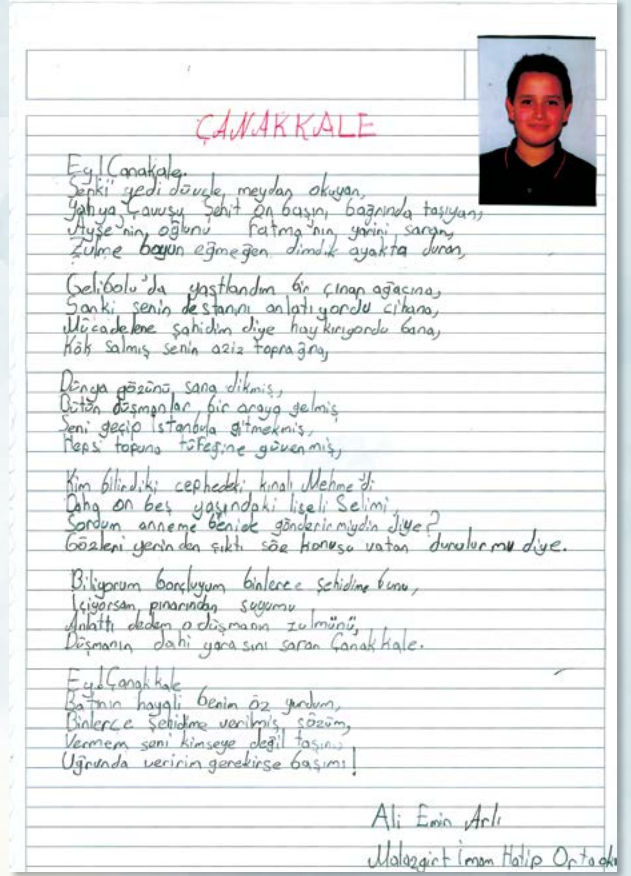 ÇANAKKALE
Ey! Çanakale.
Senki yedi düvele, meydan okuyan,
Yahya Çavuşu Şehit on başını bağrında taşıyan,
Ayşe'nin oğlunu Fatma'nın yarini saran,
Zulme boyun eğmeğen dimdik ayakta duran,
Gelibolu'da yaştlandım bir çınar ağacına,
Sanki senin destanını anlatıyordu cihana,
Mücadelene şahidim diye haykırıyordu bana,
Kök salmış senin aziz toprağna,
Dünya gözünü, sana dikmiş,
Bütün düşmanlar bir araya gelmiş
Seni geçip İstanbula gitmekmiş,
Hepsi topuna tüfeğine güvenmiş,
Kim bilirdiki cephedeki kınalı Mehme'di
Daha on beş yaşındaki liseli Selimi,
Sordum anneme benide gönderirmiydin diye?
Gözleri yerinden çıktı söz konusu vatan durulurmu diye.
Biliyorum borçluyum binlerce şehidime bunu,
İçiyorsam pınarından suyumu
Anlattı dedem o düşmanın zulmünü,
Düşmanın dahi yarasını saran Çanakkale.
Ey! Çanakkale
Batının hayali benim öz yurdum,
Binlerce Şehidime verilmiş sözüm,
Vermem seni kimseye değil taşını,
Uğrunda veririm gerekirse başımı!
Ali Emin Arlı
Malazgirt İmam Hatip Ortaoku